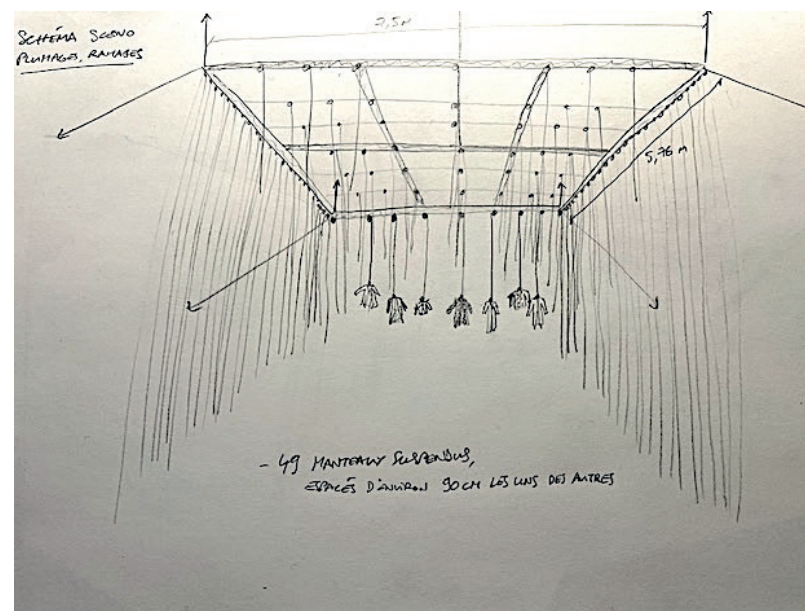 SCHÉMA SCÉNO
PLUMAGES, RAMAGES
7,5M
5,76 M
- 49 MANTEAUX SUSPENDUS,
ESPACÉS D'ENVIRON 90CM LES UNS DES AUTRES